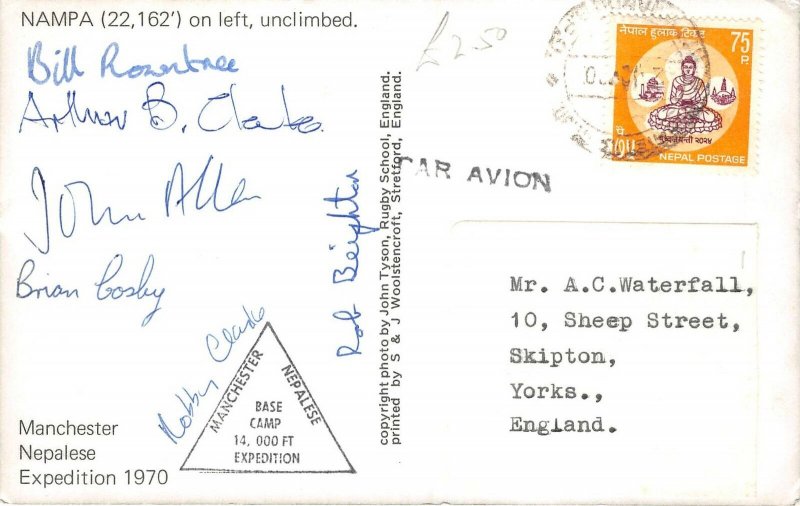 NAMPA (22,162') on left, unclimbed.
£2.50
Bill Rowntree
Arthur B. Clarke
John Allen
Brian Cosby
Nobby Clarke
Rob Beighton
MANCHESTER
NEPALESE
BASE
CAMP
14,000 FT
EXPEDITION
Manchester
Nepalese
Expedition 1970
copyright photo by John Tyson, Rugby School, England.
printed by S & J Woolstencroft, Stretford, England.
PAR AVION
नेपाल हुलाक टिकट
75
P.
NEPAL POSTAGE
Mr. A.C.Waterfall,
10, Sheep Street,
Skipton,
Yorks.,
England.